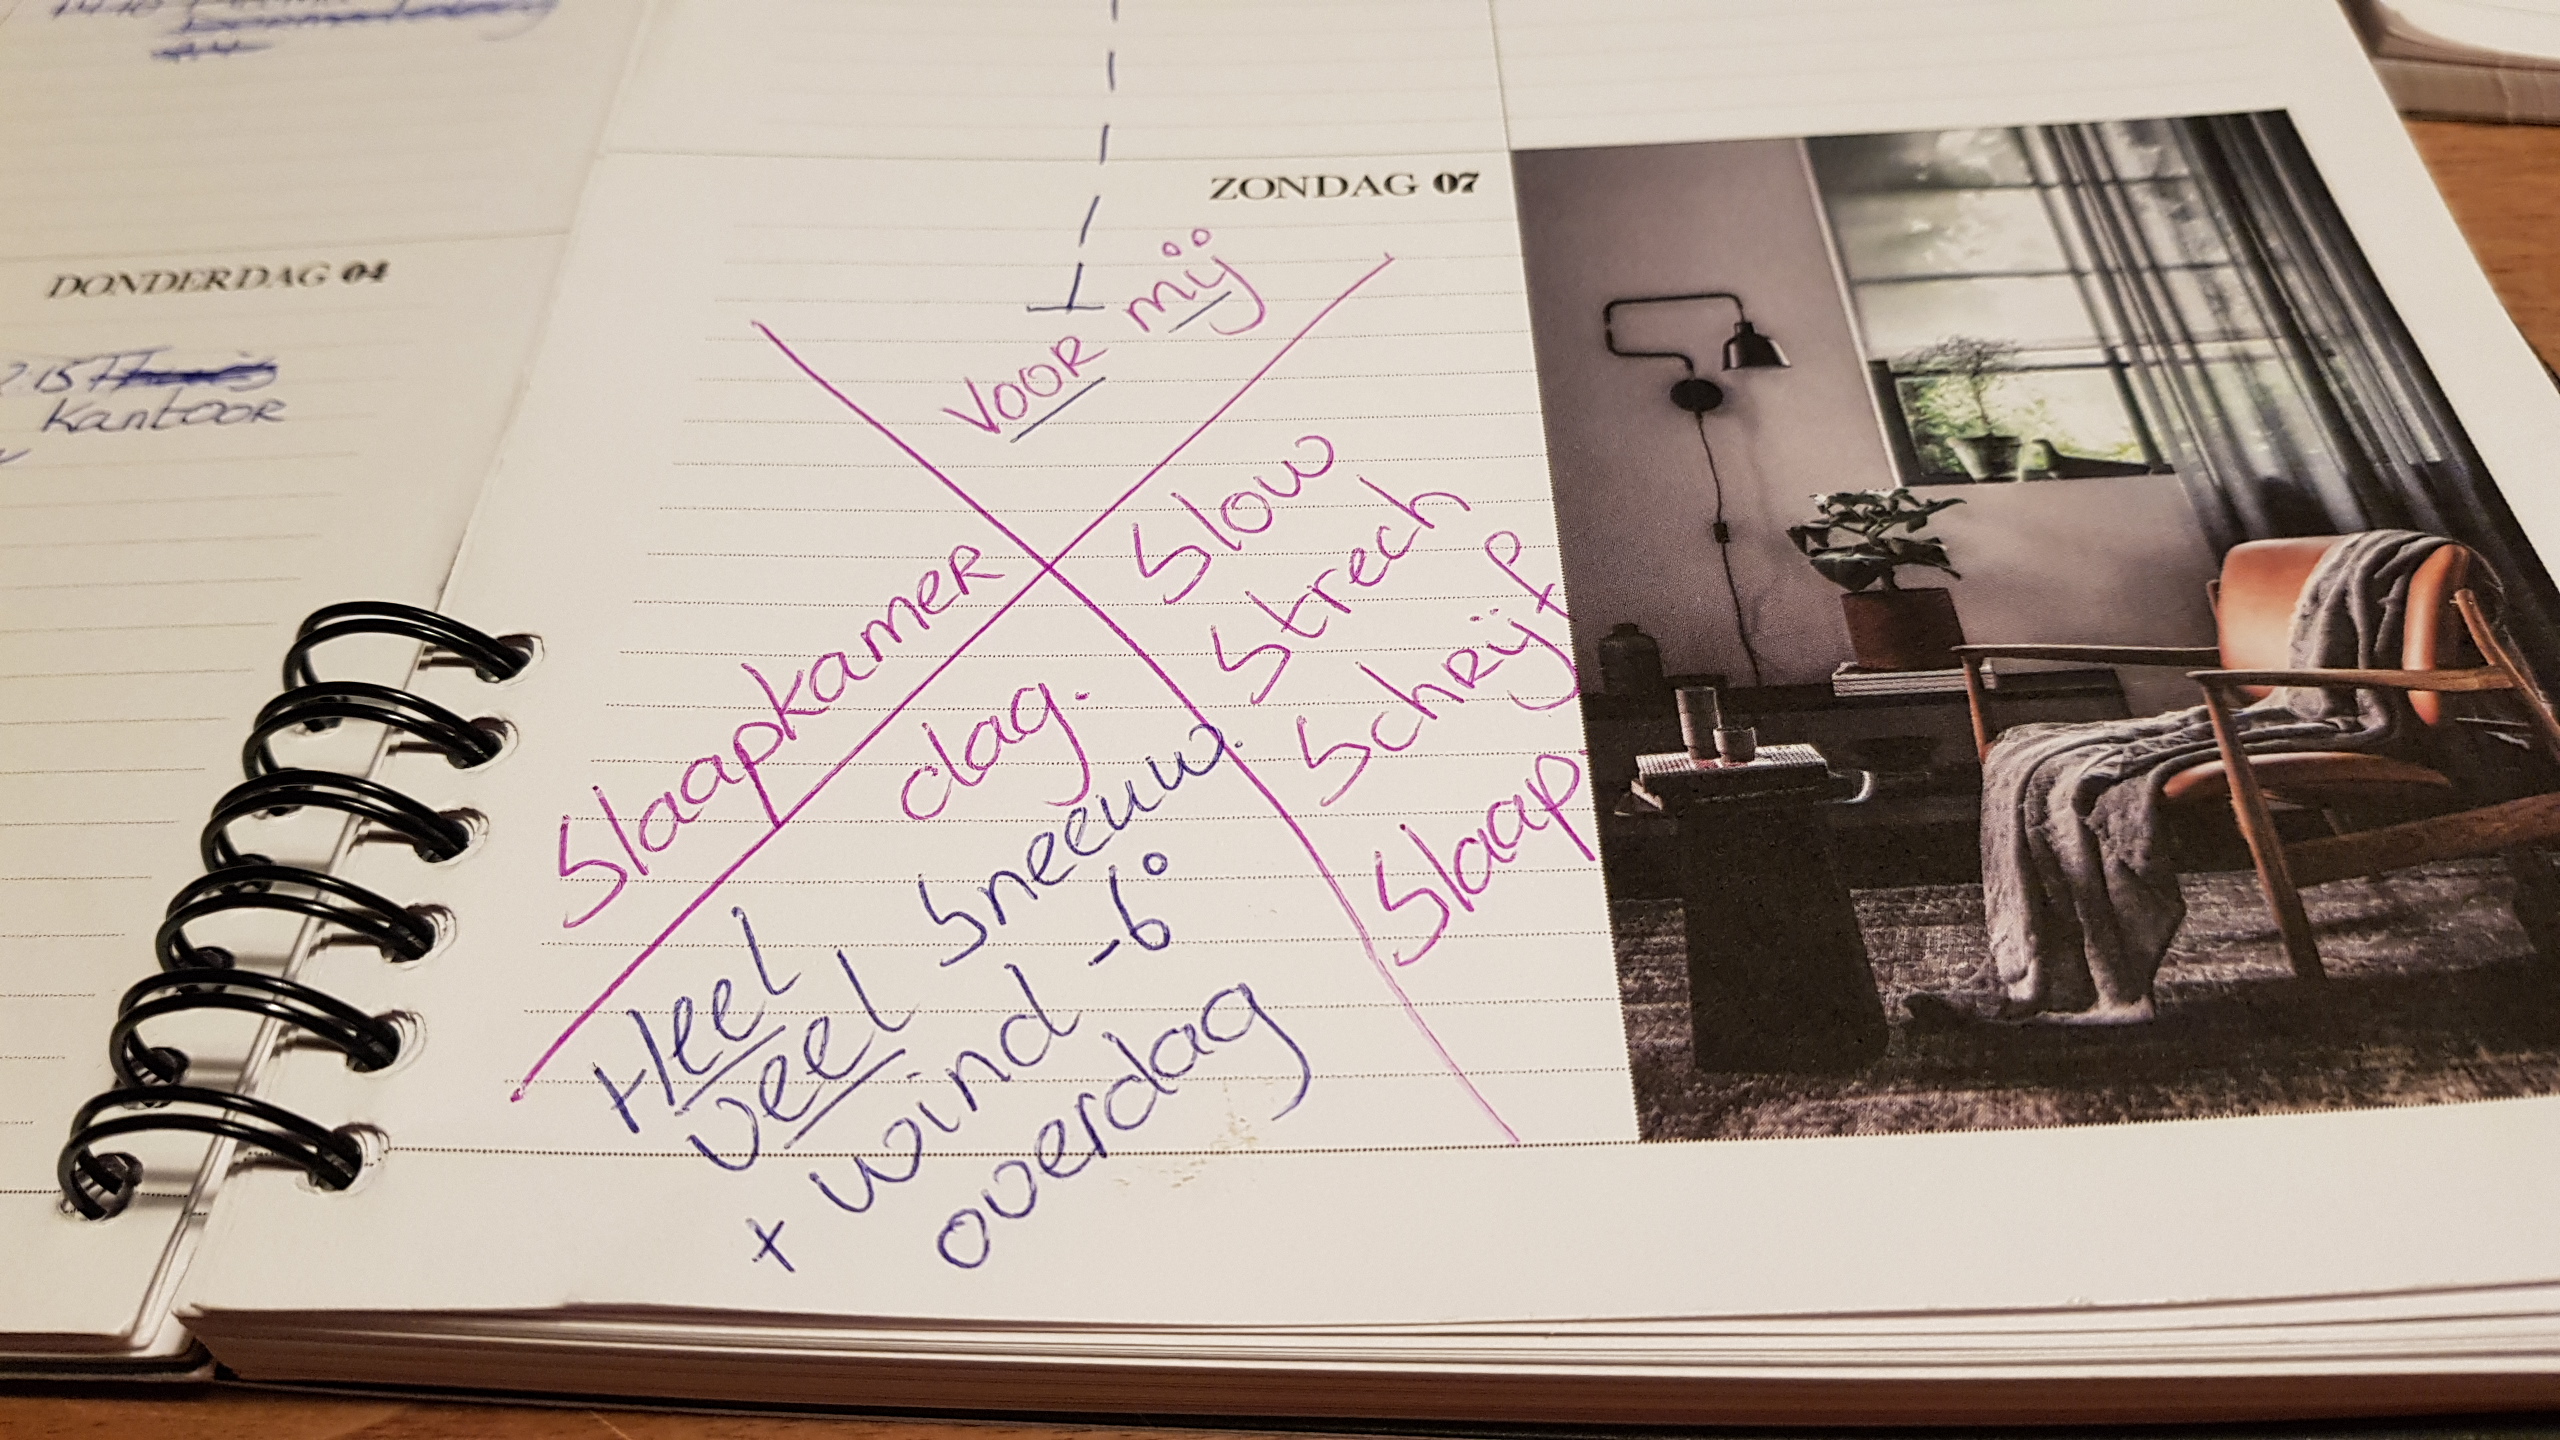 DONDERDAG 04
Kantoor
ZONDAG 07
Voor mij
Slaapkamer
dag.
Slow
Strech
Schrijf
Slaap
Heel
veel sneeuw.
+ wind -6°
overdag